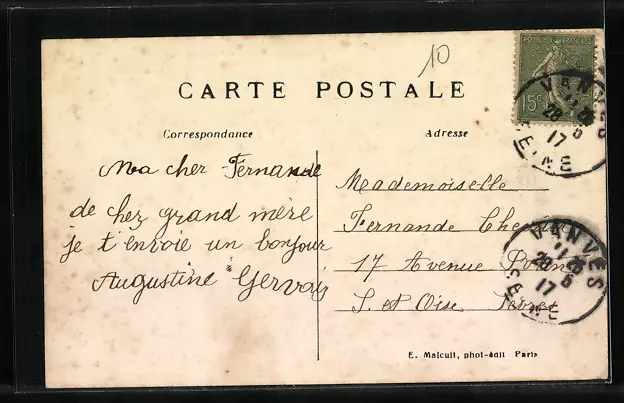 10
CARTE POSTALE
REPUBLIQUE FRANÇAISE
15c
VANVES
11 25
28 5
17
SEINE
Correspondance
Adresse
Ma cher Fernande
de chez grand mère
je t'envoie un bonjour
Augustine Gervais
Mademoiselle
Fernande
17 Avenue
S. et Oise
VANVES
11 25
28 5
17
SEINE
E. Malcuit, phot-édit Paris